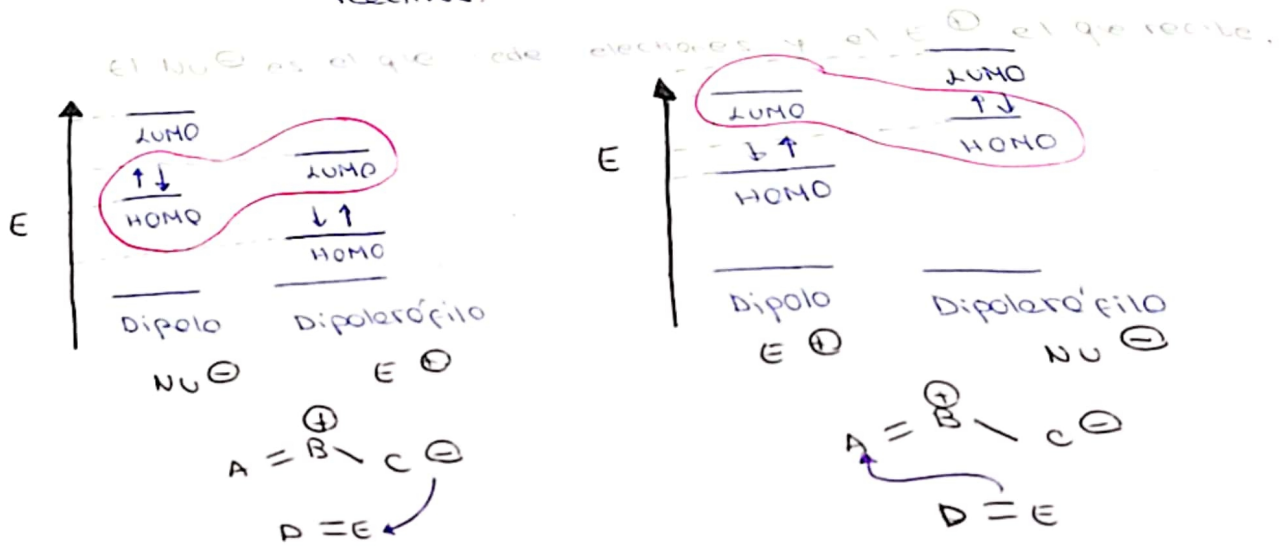 El Nu⊖ es el que cede electrones y el E⊕ el que recibe.
E
LUMO
↑↓
HOMO
LUMO
↓↑
HOMO
Dipolo
Dipolarófilo
Nu⊖
E⊕
A = B⊕ \ C⊖
D = E
E
LUMO
↓↑
HOMO
LUMO
↑↓
HOMO
Dipolo
Dipolarófilo
E⊕
Nu⊖
A = B⊕ \ C⊖
D = E